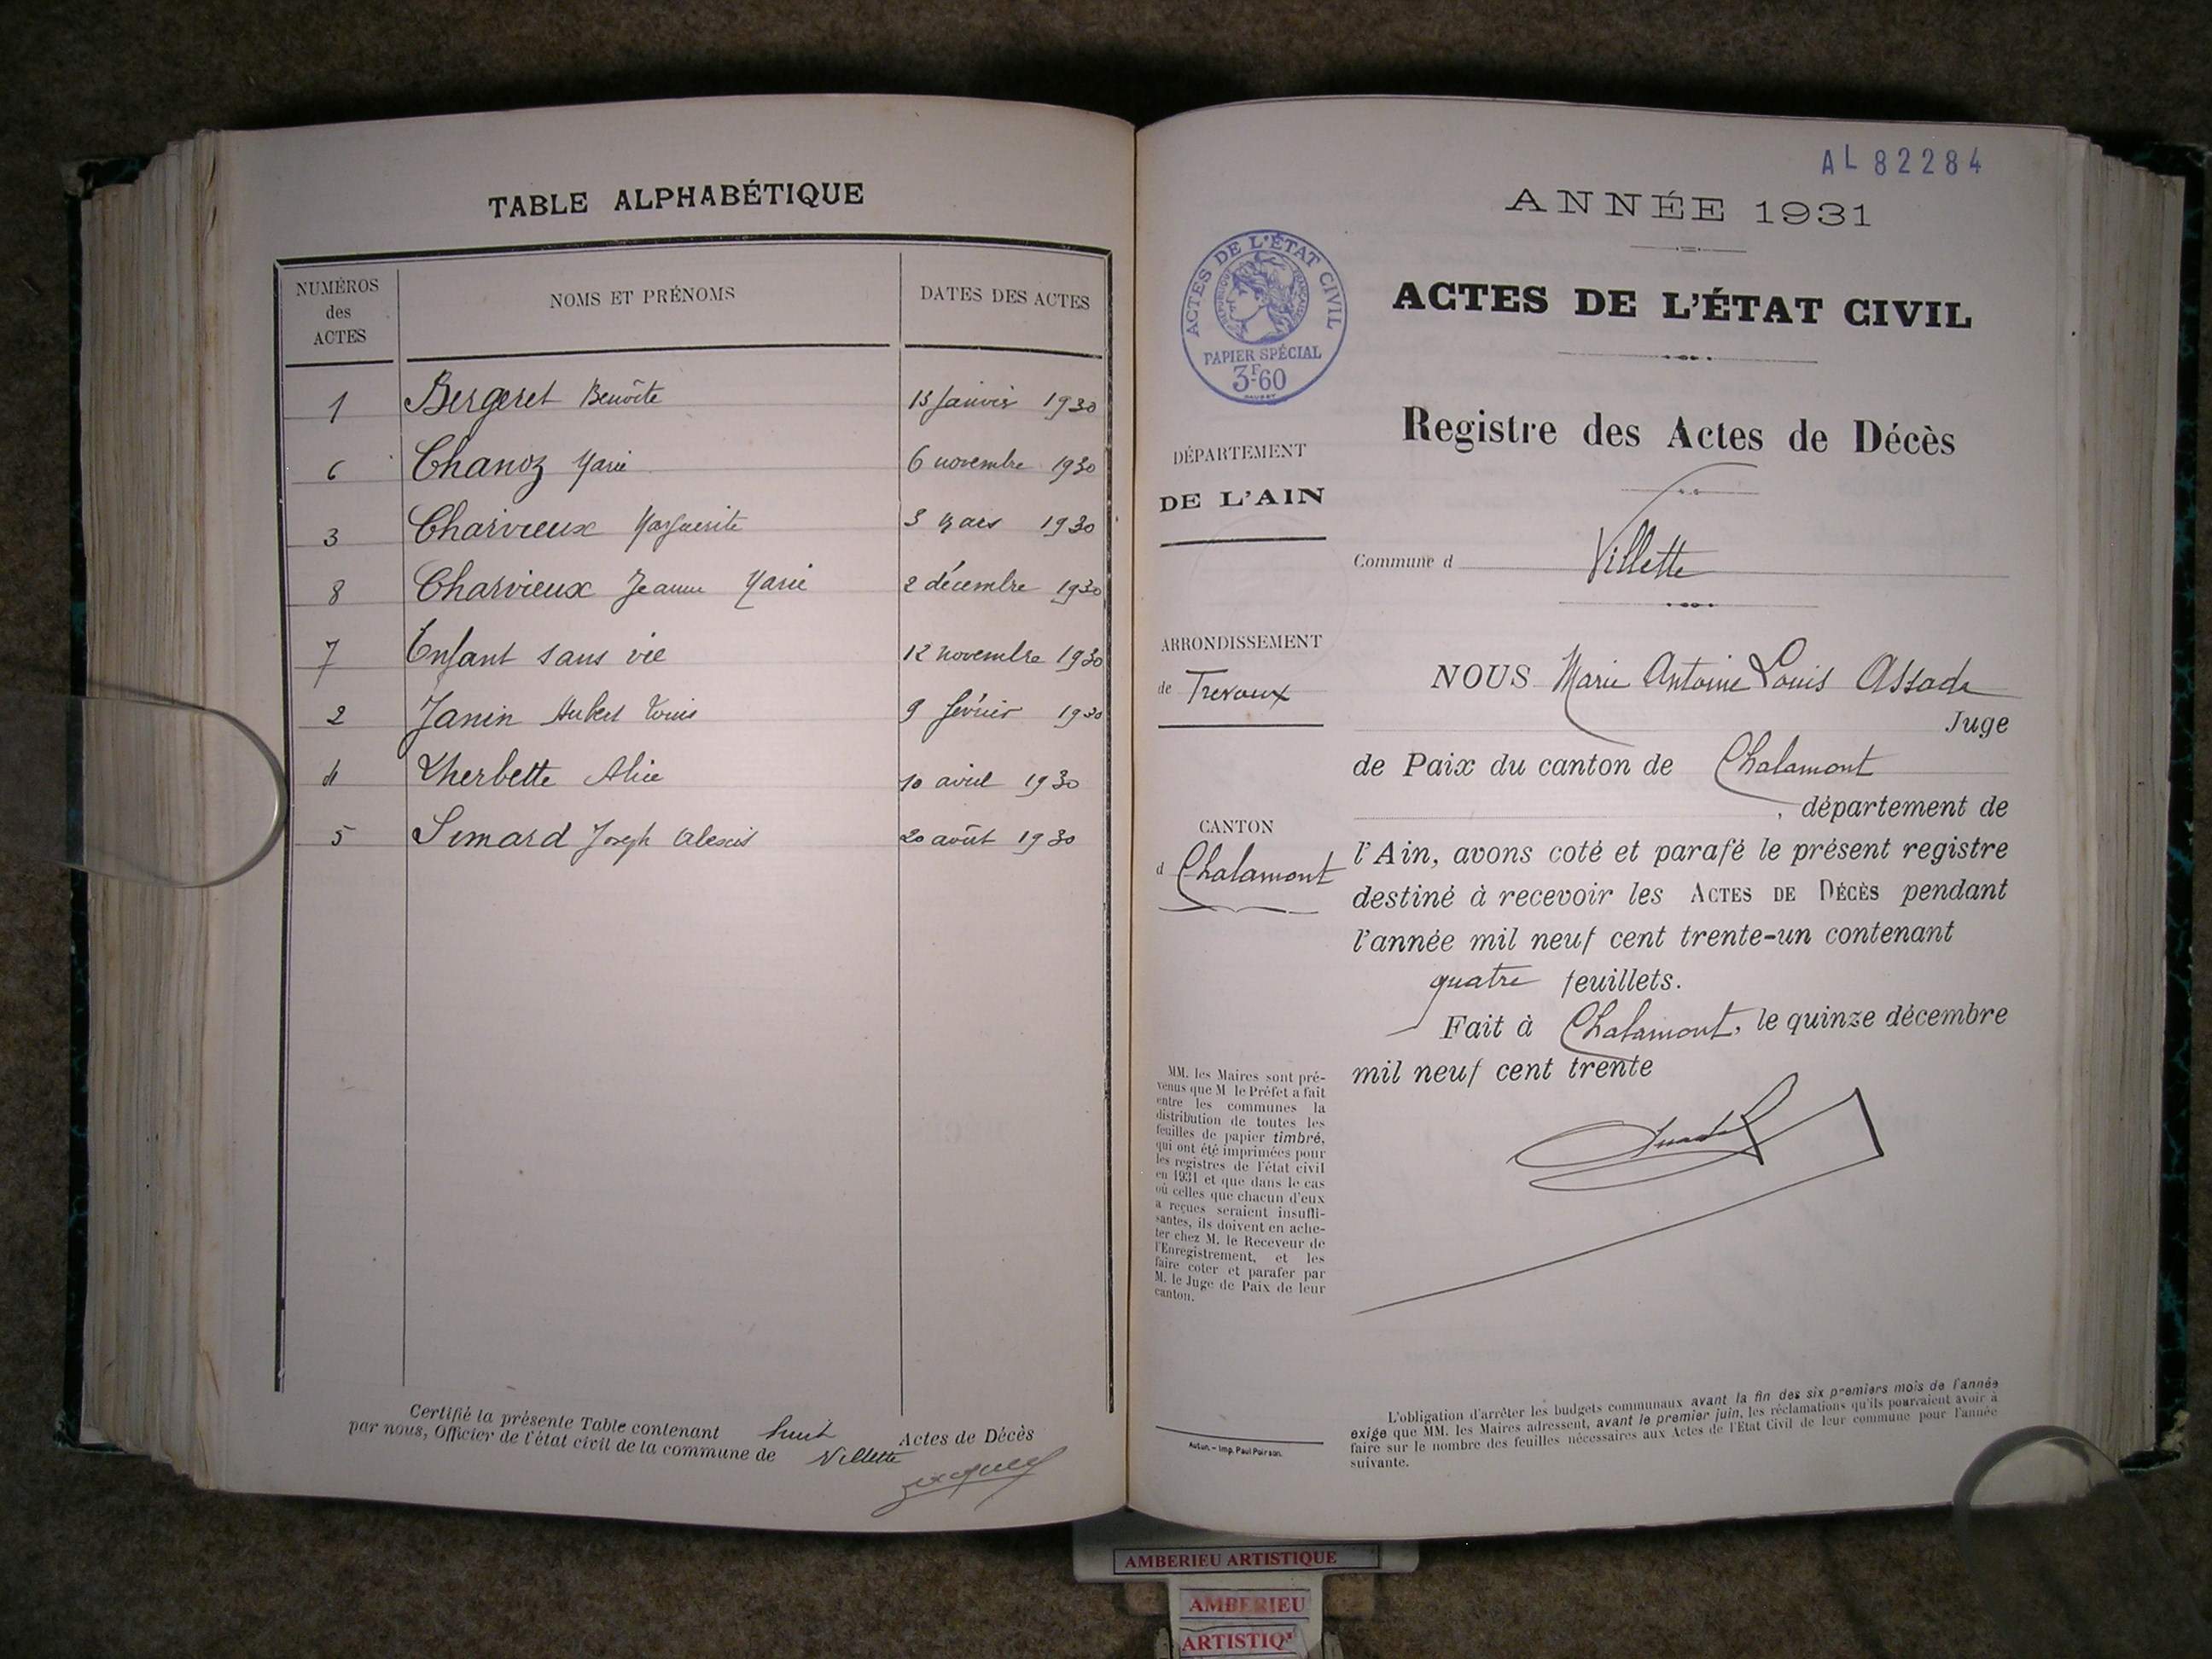 TABLE ALPHABÉTIQUE
NUMÉROS
des
ACTES
NOMS ET PRÉNOMS
DATES DES ACTES
1 Bergeret Benoîte 13 Janvier 1930
6 Chanoz Marie 6 novembre 1930
3 Charvieux Marguerite 3 Mars 1930
8 Charvieux Jeanne Marie 2 décembre 1930
7 Enfant sans vie 12 novembre 1930
2 Janin Hubert Louis 9 février 1930
4 Lherbette Alice 10 avril 1930
5 Simard Joseph Alexis 20 août 1930
Certifié la présente Table contenant huit Actes de Décès
par nous, Officier de l'état civil de la commune de Villette
AL 82284
ANNÉE 1931
ACTES DE L'ÉTAT CIVIL
RÉPUBLIQUE FRANÇAISE
PAPIER SPÉCIAL
3F60
ACTES DE L'ÉTAT CIVIL
Registre des Actes de Décès
DÉPARTEMENT
DE L'AIN
Commune d Villette
ARRONDISSEMENT
de Trevoux
CANTON
d Chalamont
NOUS Marie Antoine Louis
Juge
de Paix du canton de Chalamont
, département de
l'Ain, avons coté et parafé le présent registre
destiné à recevoir les ACTES DE DÉCÈS pendant
l'année mil neuf cent trente-un contenant
quatre feuillets.
Fait à Chalamont, le quinze décembre
mil neuf cent trente
MM. les Maires sont pré-
venus que M le Préfet a fait
entre les communes la
distribution de toutes les
feuilles de papier timbré,
qui ont été imprimées pour
les registres de l'état civil
en 1931 et que dans le cas
où celles que chacun d'eux
a reçues seraient insuffi-
santes, ils doivent en ache-
ter chez M. le Receveur de
l'Enregistrement, et les
faire coter et parafer par
M. le Juge de Paix de leur
canton.
Autun. – Imp. Paul Poirson.
L'obligation d'arrêter les budgets communaux avant la fin des six premiers mois de l'année
exige que MM. les Maires adressent, avant le premier juin, les réclamations qu'ils pourraient avoir à
faire sur le nombre des feuilles nécessaires aux Actes de l'Etat Civil de leur commune pour l'année
suivante.
AMBERIEU ARTISTIQUE
AMBERIEU
ARTISTIQ